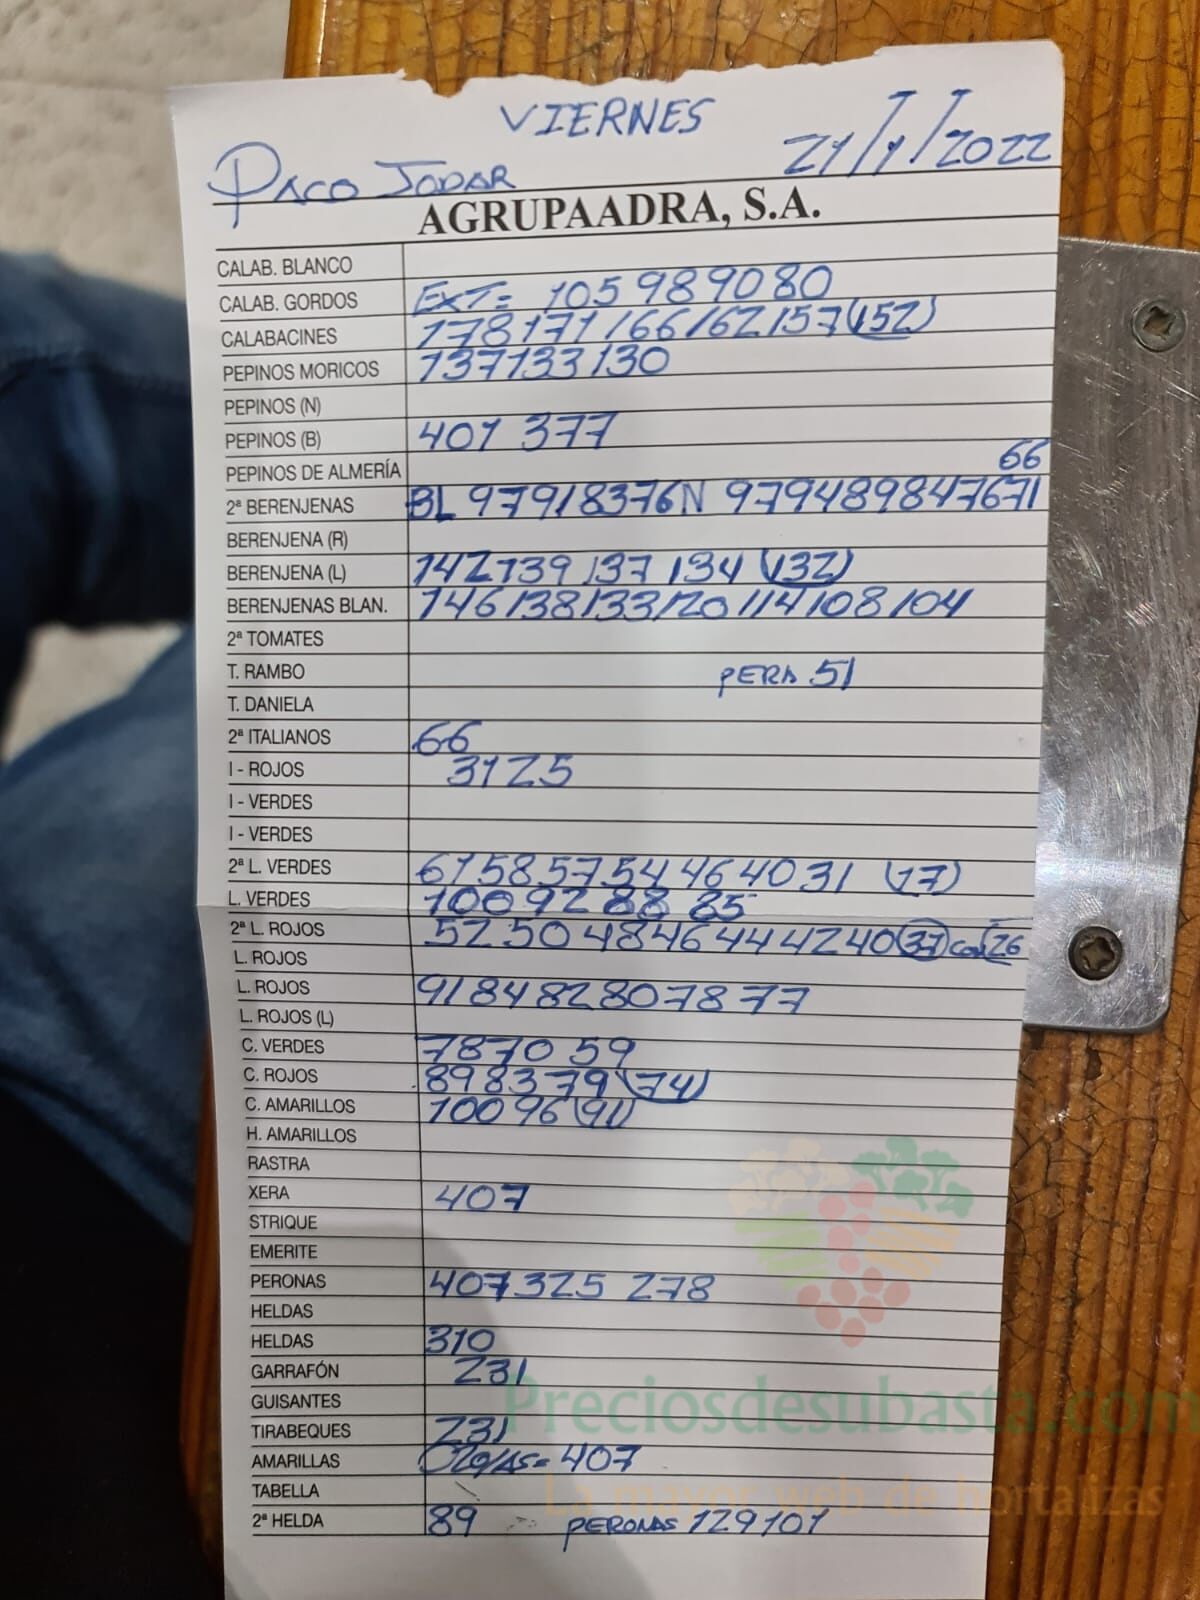 VIERNES
PACO JODAR 21/1/2022
AGRUPAADRA, S.A.
CALAB. BLANCO
CALAB. GORDOS EXT= 105 98 90 80
CALABACINES 178 171 166 162 157 (152)
PEPINOS MORICOS 137 133 130
PEPINOS (N)
PEPINOS (B) 401 377
PEPINOS DE ALMERÍA 66
2ª BERENJENAS BL 97 91 83 76 N 97 94 89 84 76 71
BERENJENA (R)
BERENJENA (L) 142 139 137 134 (132)
BERENJENAS BLAN. 146 138 133 120 114 108 104
2ª TOMATES
T. RAMBO PERA 51
T. DANIELA
2ª ITALIANOS 66
I - ROJOS 31 25
I - VERDES
I - VERDES
2ª L. VERDES 61 58 57 54 46 40 31 (17)
L. VERDES 100 92 88 85
2ª L. ROJOS 52 50 48 46 44 42 40 (37) 26
L. ROJOS
L. ROJOS 91 84 82 80 78 77
L. ROJOS (L)
C. VERDES 78 70 59
C. ROJOS 89 83 79 (74)
C. AMARILLOS 100 96 (91)
H. AMARILLOS
RASTRA
XERA 407
STRIQUE
EMERITE
PERONAS 407 325 278
HELDAS
HELDAS 310
GARRAFÓN 231
GUISANTES
Preciosdesubasta.com
TIRABEQUES 231
AMARILLAS = 407
La mayor web de hortalizas
TABELLA
2ª HELDA 89 PERONAS 129 101